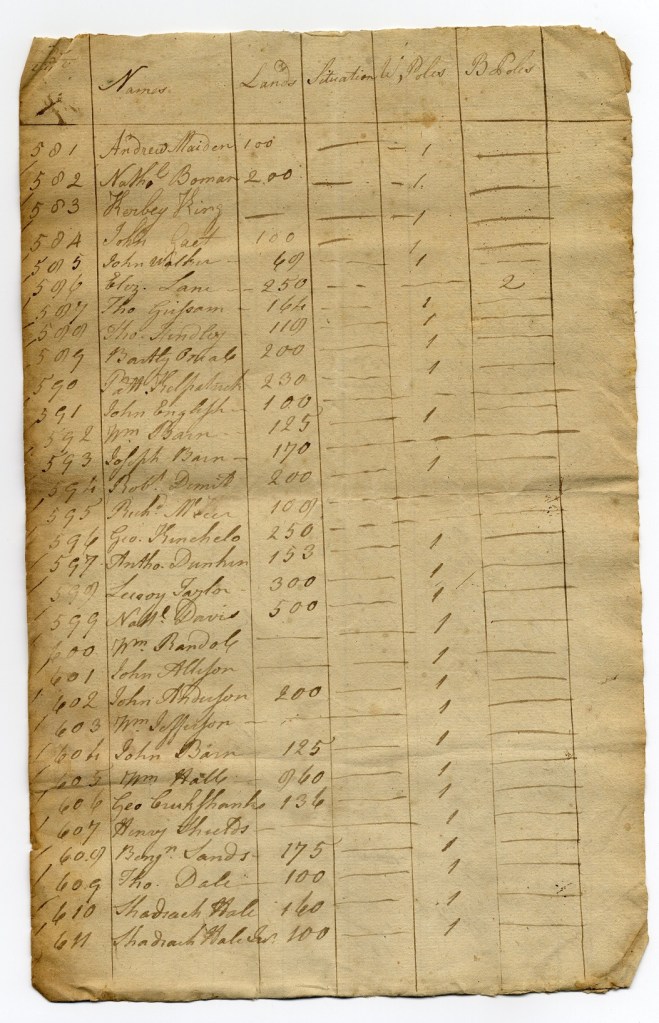 Names Lands Situation W. Poles B Poles
581 Andrew Maiden 100 — — 1 —
582 Nathol Boman 200 — — 1 —
583 Kerbey King — — — 1 —
584 John 100 — 1 —
585 John Walker — 68 — 1 —
586 Eliz. Lane — 250 — — 2
587 Tho Grissam — 164 — 1 —
588 Tho. 118 — 1 —
589 Bartly Oneale 200 — 1 —
590 Patt Kelpatrick 230 — 1 —
591 John English — 100 — — —
592 Wm Barn — 125 — 1 —
593 Joseph Barn — 170 — — —
594 Robt. Demit 200 — 1 —
595 Richd. 100 — — —
596 Geo. Kinchelo 250 — — —
597 Antho. Dunkin 153 — 1 —
598 Leeroy Taylor 300 — 1 —
599 Nathl Davis 500 — 1 —
600 Wm Randol — — 1 —
601 John Allison — — 1 —
602 John Anderson 200 — 1 —
603 Wm Jefferson — — — 1 —
604 John Barn 125 — 1 —
605 Wm Hall 960 — 1 —
606 Geo Crukshanks 136 — 1 —
607 Henry Shields — — 1 —
608 Benjn. Sands 175 — 1 —
609 Tho. Dale 100 — 1 —
610 Shadrach Hale 160 — 1 —
611 Shadrach Hale Jur. 100 — 1 —